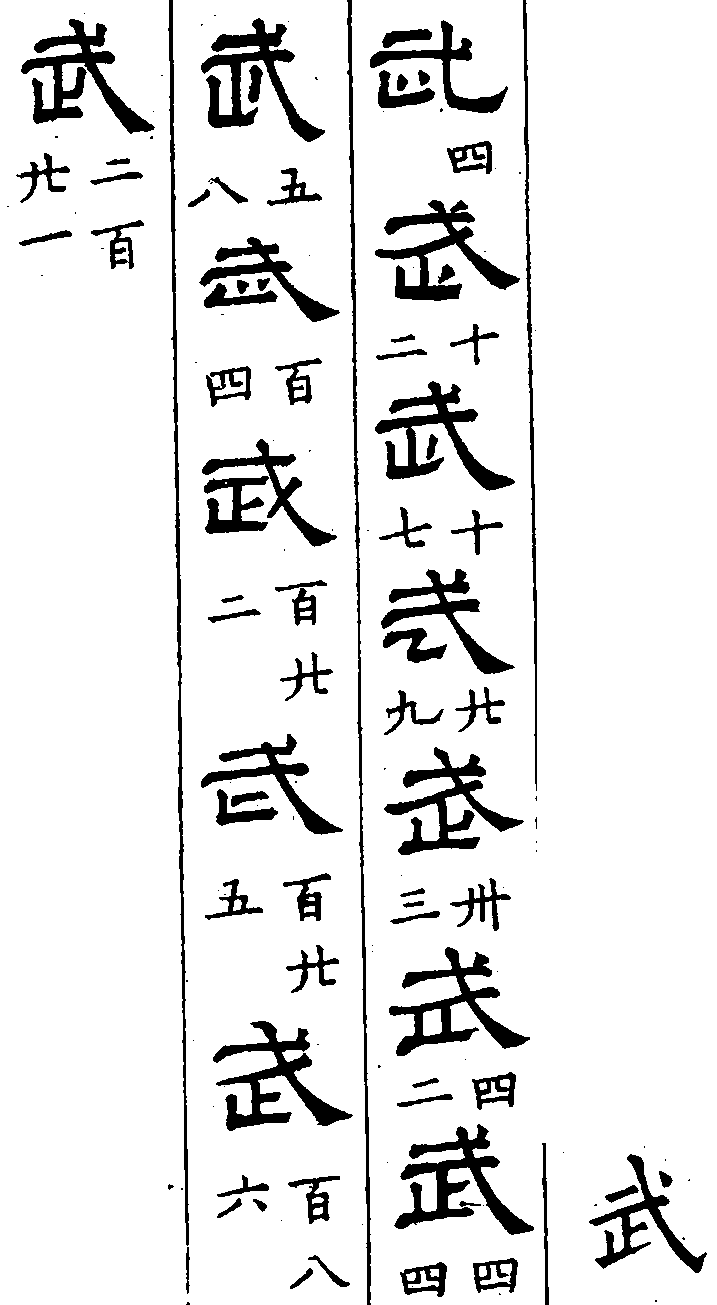 武
武
四
武
十二
武
十七
武
廿九
武
卅三
武
四二
武
四四
武
五八
武
百四
武
百廿二
武
百廿五
武
百八六
武
二百廿一